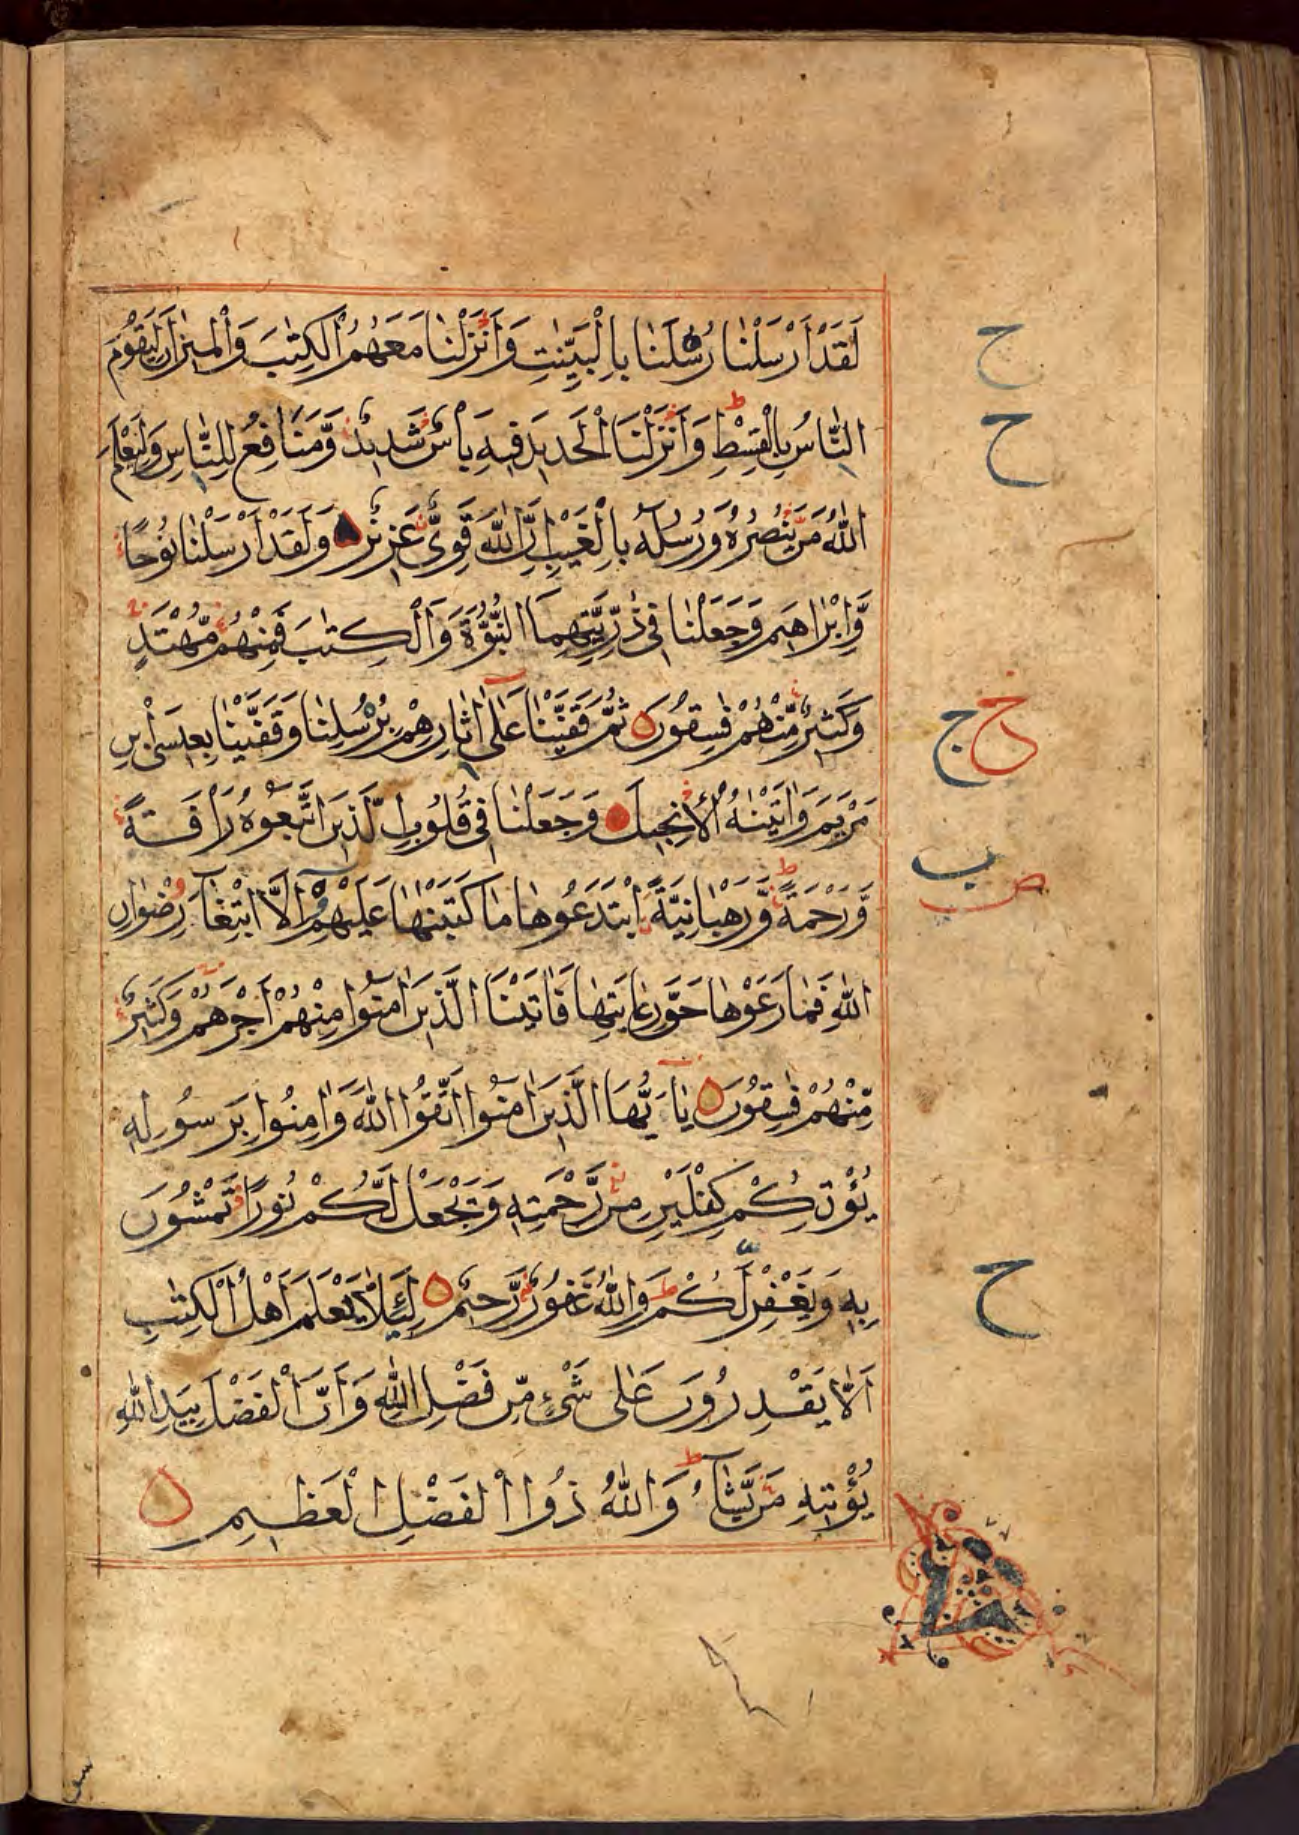 لَقَدْ اَرْسَلْنٰا رُسُلَنٰا بِالْبَيِّنٰتِ وَاَنْزَلْنٰا مَعَهُمُ الْكِتٰبَ وَالْمٖيزٰانَ لِيَقُومَ
النّٰاسُ بِالْقِسْطِ وَاَنْزَلْنَا الْحَدٖيدَ فٖيهِ بَأْسٌ شَدٖيدٌ وَّمَنٰافِعُ لِلنّٰاسِ وَلِيَعْلَمَ
اللّٰهُ مَنْ يَّنْصُرُهُ وَرُسُلَهُ بِالْغَيْبِ اِنَّ اللّٰهَ قَوِىٌّ عَزٖيزٌ وَلَقَدْ اَرْسَلْنٰا نُوْحًا
وَّاِبْرٰاهٖيمَ وَجَعَلْنٰا فٖى ذُرِّيَّتِهِمَا النُّبُوَّةَ وَالْكِتٰبَ فَمِنْهُمْ مُّهْتَدٍ
وَكَثٖيرٌ مِّنْهُمْ فٰسِقُونَ ثُمَّ قَفَّيْنٰا عَلٰى اٰثٰارِهِمْ بِرُسُلِنٰا وَقَفَّيْنٰا بِعٖيسَى ابْنِ
مَرْيَمَ وَاٰتَيْنٰهُ الْاِنْجٖيلَ وَجَعَلْنٰا فٖى قُلُوبِ الَّذٖينَ اتَّبَعُوهُ رَاْفَةً
وَّرَحْمَةً وَّرَهْبٰانِيَّةً ابْتَدَعُوهٰا مٰا كَتَبْنٰهٰا عَلَيْهِمْ اِلَّا ابْتِغٰآءَ رِضْوٰانِ
اللّٰهِ فَمٰا رَعَوْهٰا حَقَّ رِعٰايَتِهٰا فَاٰتَيْنَا الَّذٖينَ اٰمَنُوا مِنْهُمْ اَجْرَهُمْ وَكَثٖيرٌ
مِّنْهُمْ فٰسِقُونَ يٰاَيُّهَا الَّذٖينَ اٰمَنُوا اتَّقُوا اللّٰهَ وَاٰمِنُوا بِرَسُولِهٖ
يُؤْتِكُمْ كِفْلَيْنِ مِنْ رَّحْمَتِهٖ وَيَجْعَلْ لَّكُمْ نُورًا تَمْشُونَ
بِهٖ وَيَغْفِرْ لَكُمْ وَاللّٰهُ غَفُورٌ رَّحٖيمٌ لِئَلَّا يَعْلَمَ اَهْلُ الْكِتٰبِ
اَلَّا يَقْدِرُونَ عَلٰى شَىْءٍ مِّنْ فَضْلِ اللّٰهِ وَاَنَّ الْفَضْلَ بِيَدِ اللّٰهِ
يُؤْتٖيهِ مَنْ يَّشٰآءُ وَاللّٰهُ ذُوا الْفَضْلِ الْعَظٖيمِ
ح
ح
ج خ
ب ص
ح